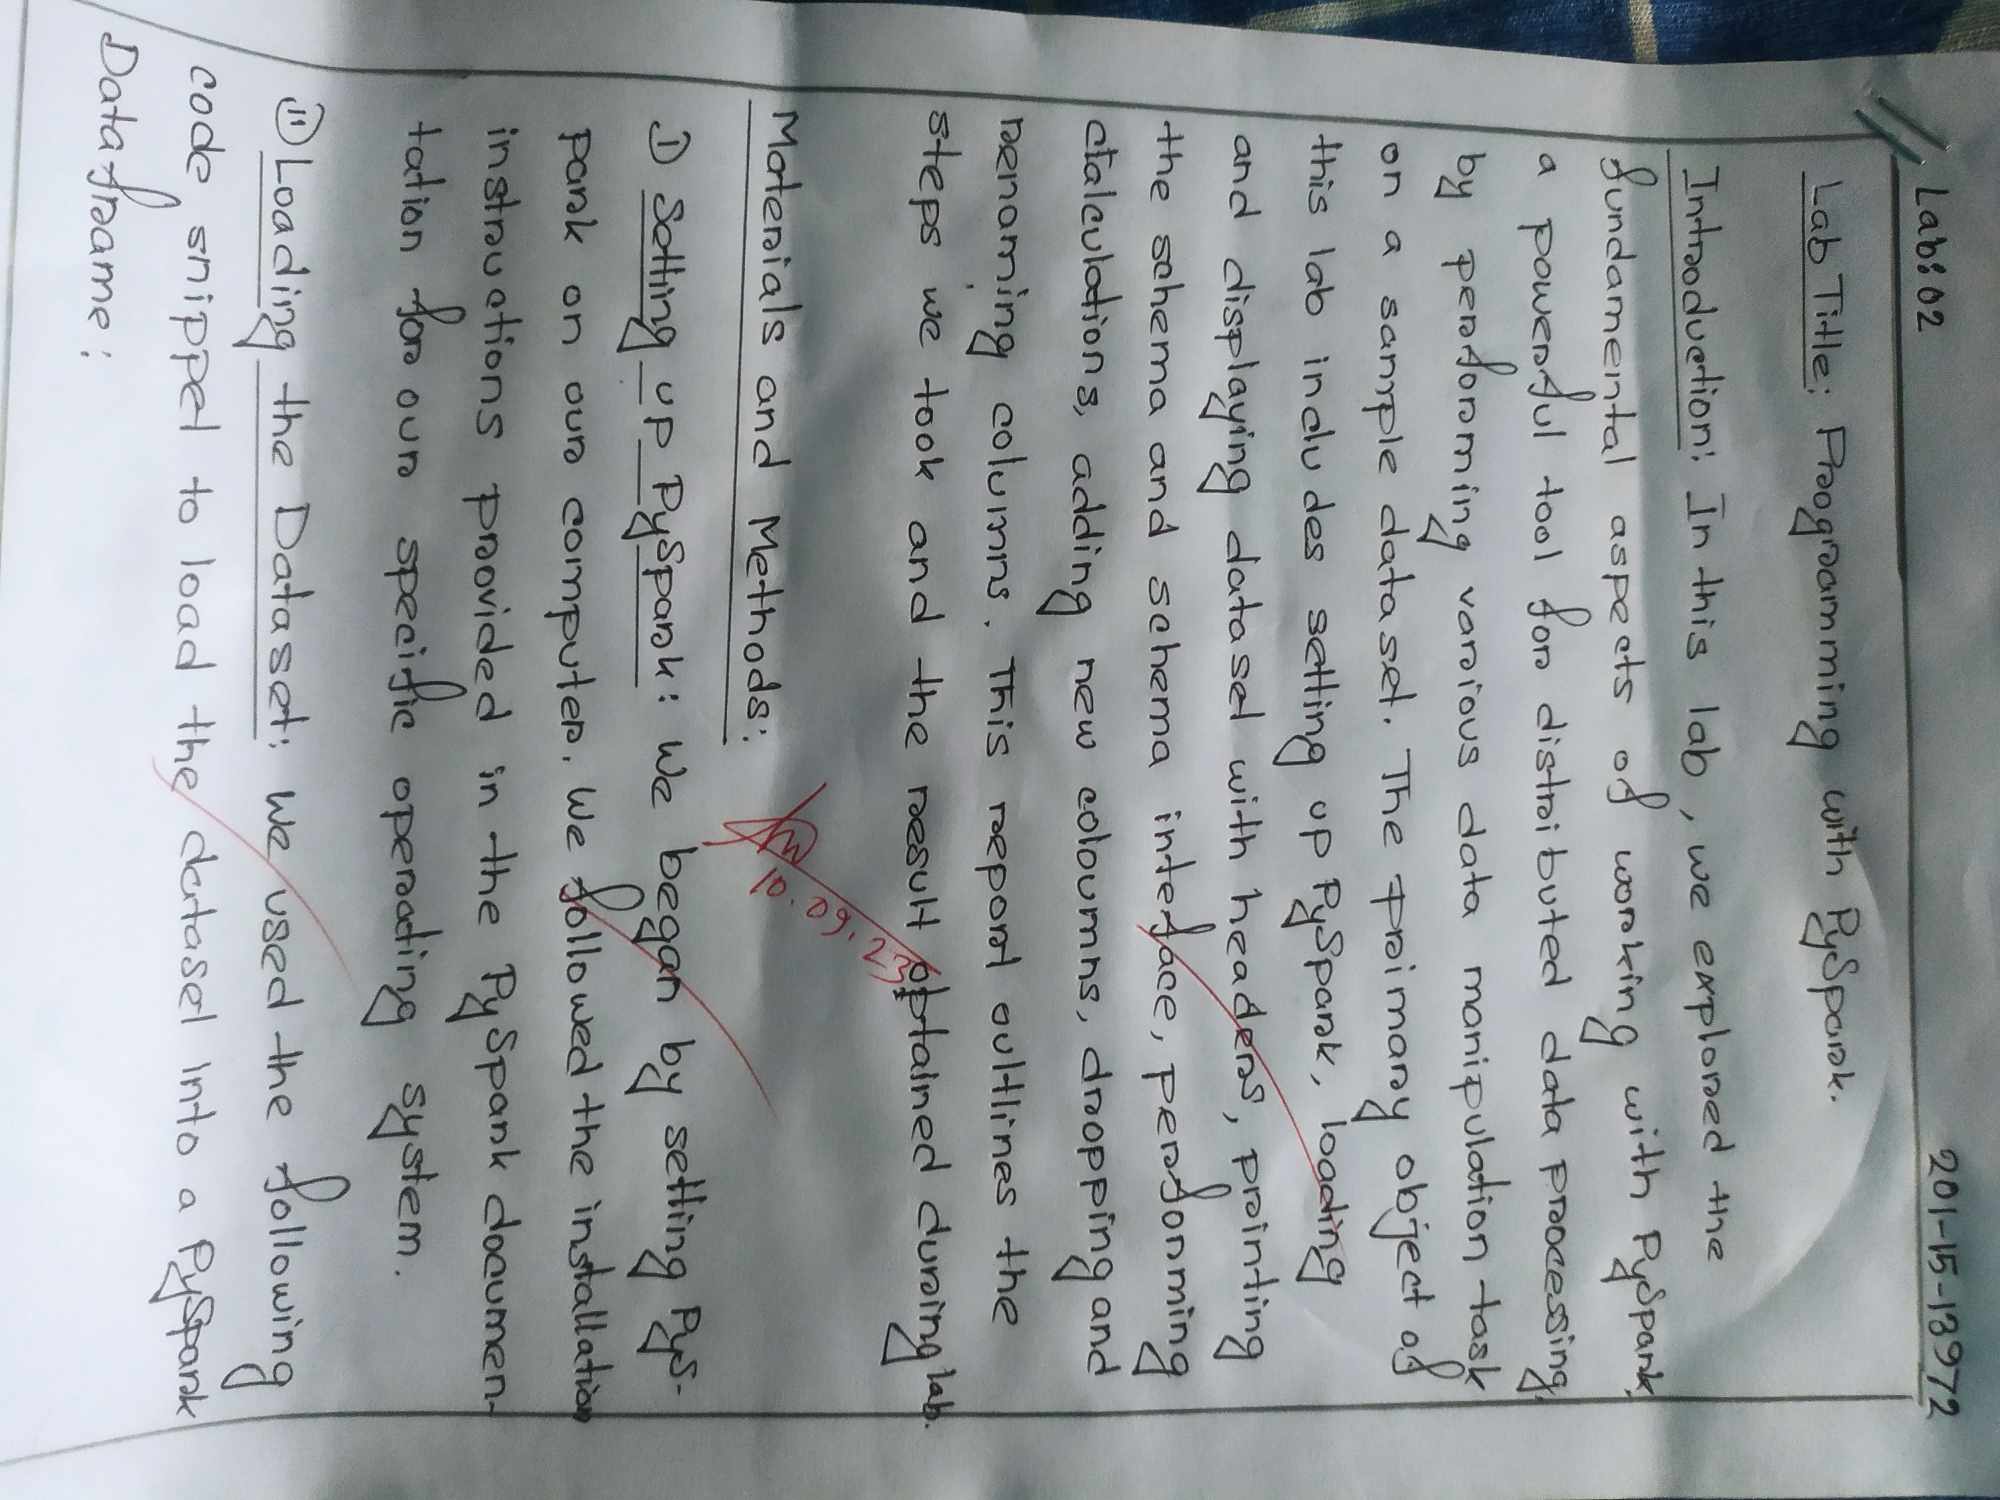 Lab: 02
201-15-13972
Lab Title: Programming with PySpark.
Introduction: In this lab, we explored the
fundamental aspects of working with PySpark,
a powerful tool for distributed data processing,
by performing various data manipulation task
on a sample dataset. The primary object of
this lab includes setting up PySpark, loading
and displaying dataset with headers, printing
the schema and schema inteface, performing
calculations, adding new coloumns, dropping and
renaming columns. This report oultlines the
steps we took and the result obtained during lab.
10.09.23
Materials and Methods:
I) Setting up PySpark: We began by setting PyS-
park on our computer. We followed the installation
instructions provided in the PySpark documen-
tation for our specific operating system.
II) Loading the Dataset: We used the following
code snippet to load the dataset into a PySpark
Dataframe: